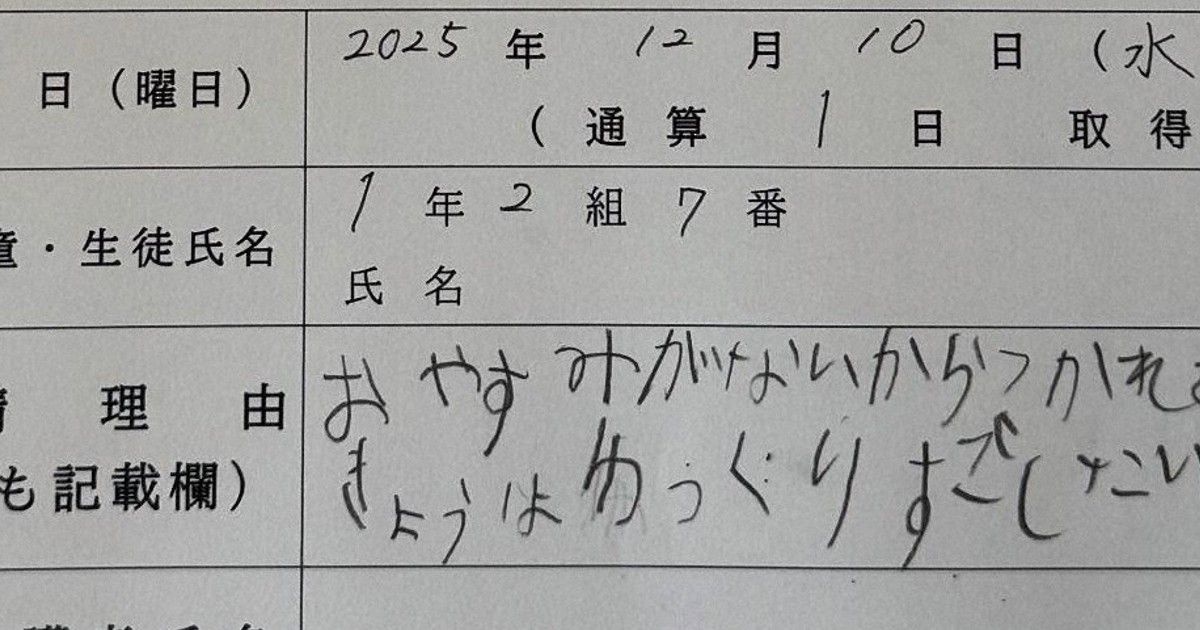 日（曜日） 2025 年 12 月 10 日 （水
（ 通 算 1 日 取 得
童・生徒氏名 1 年 2 組 7 番
氏 名
理 由 おやすみがないからつかれ
も記載欄） きょうはゆっくりすごしたい